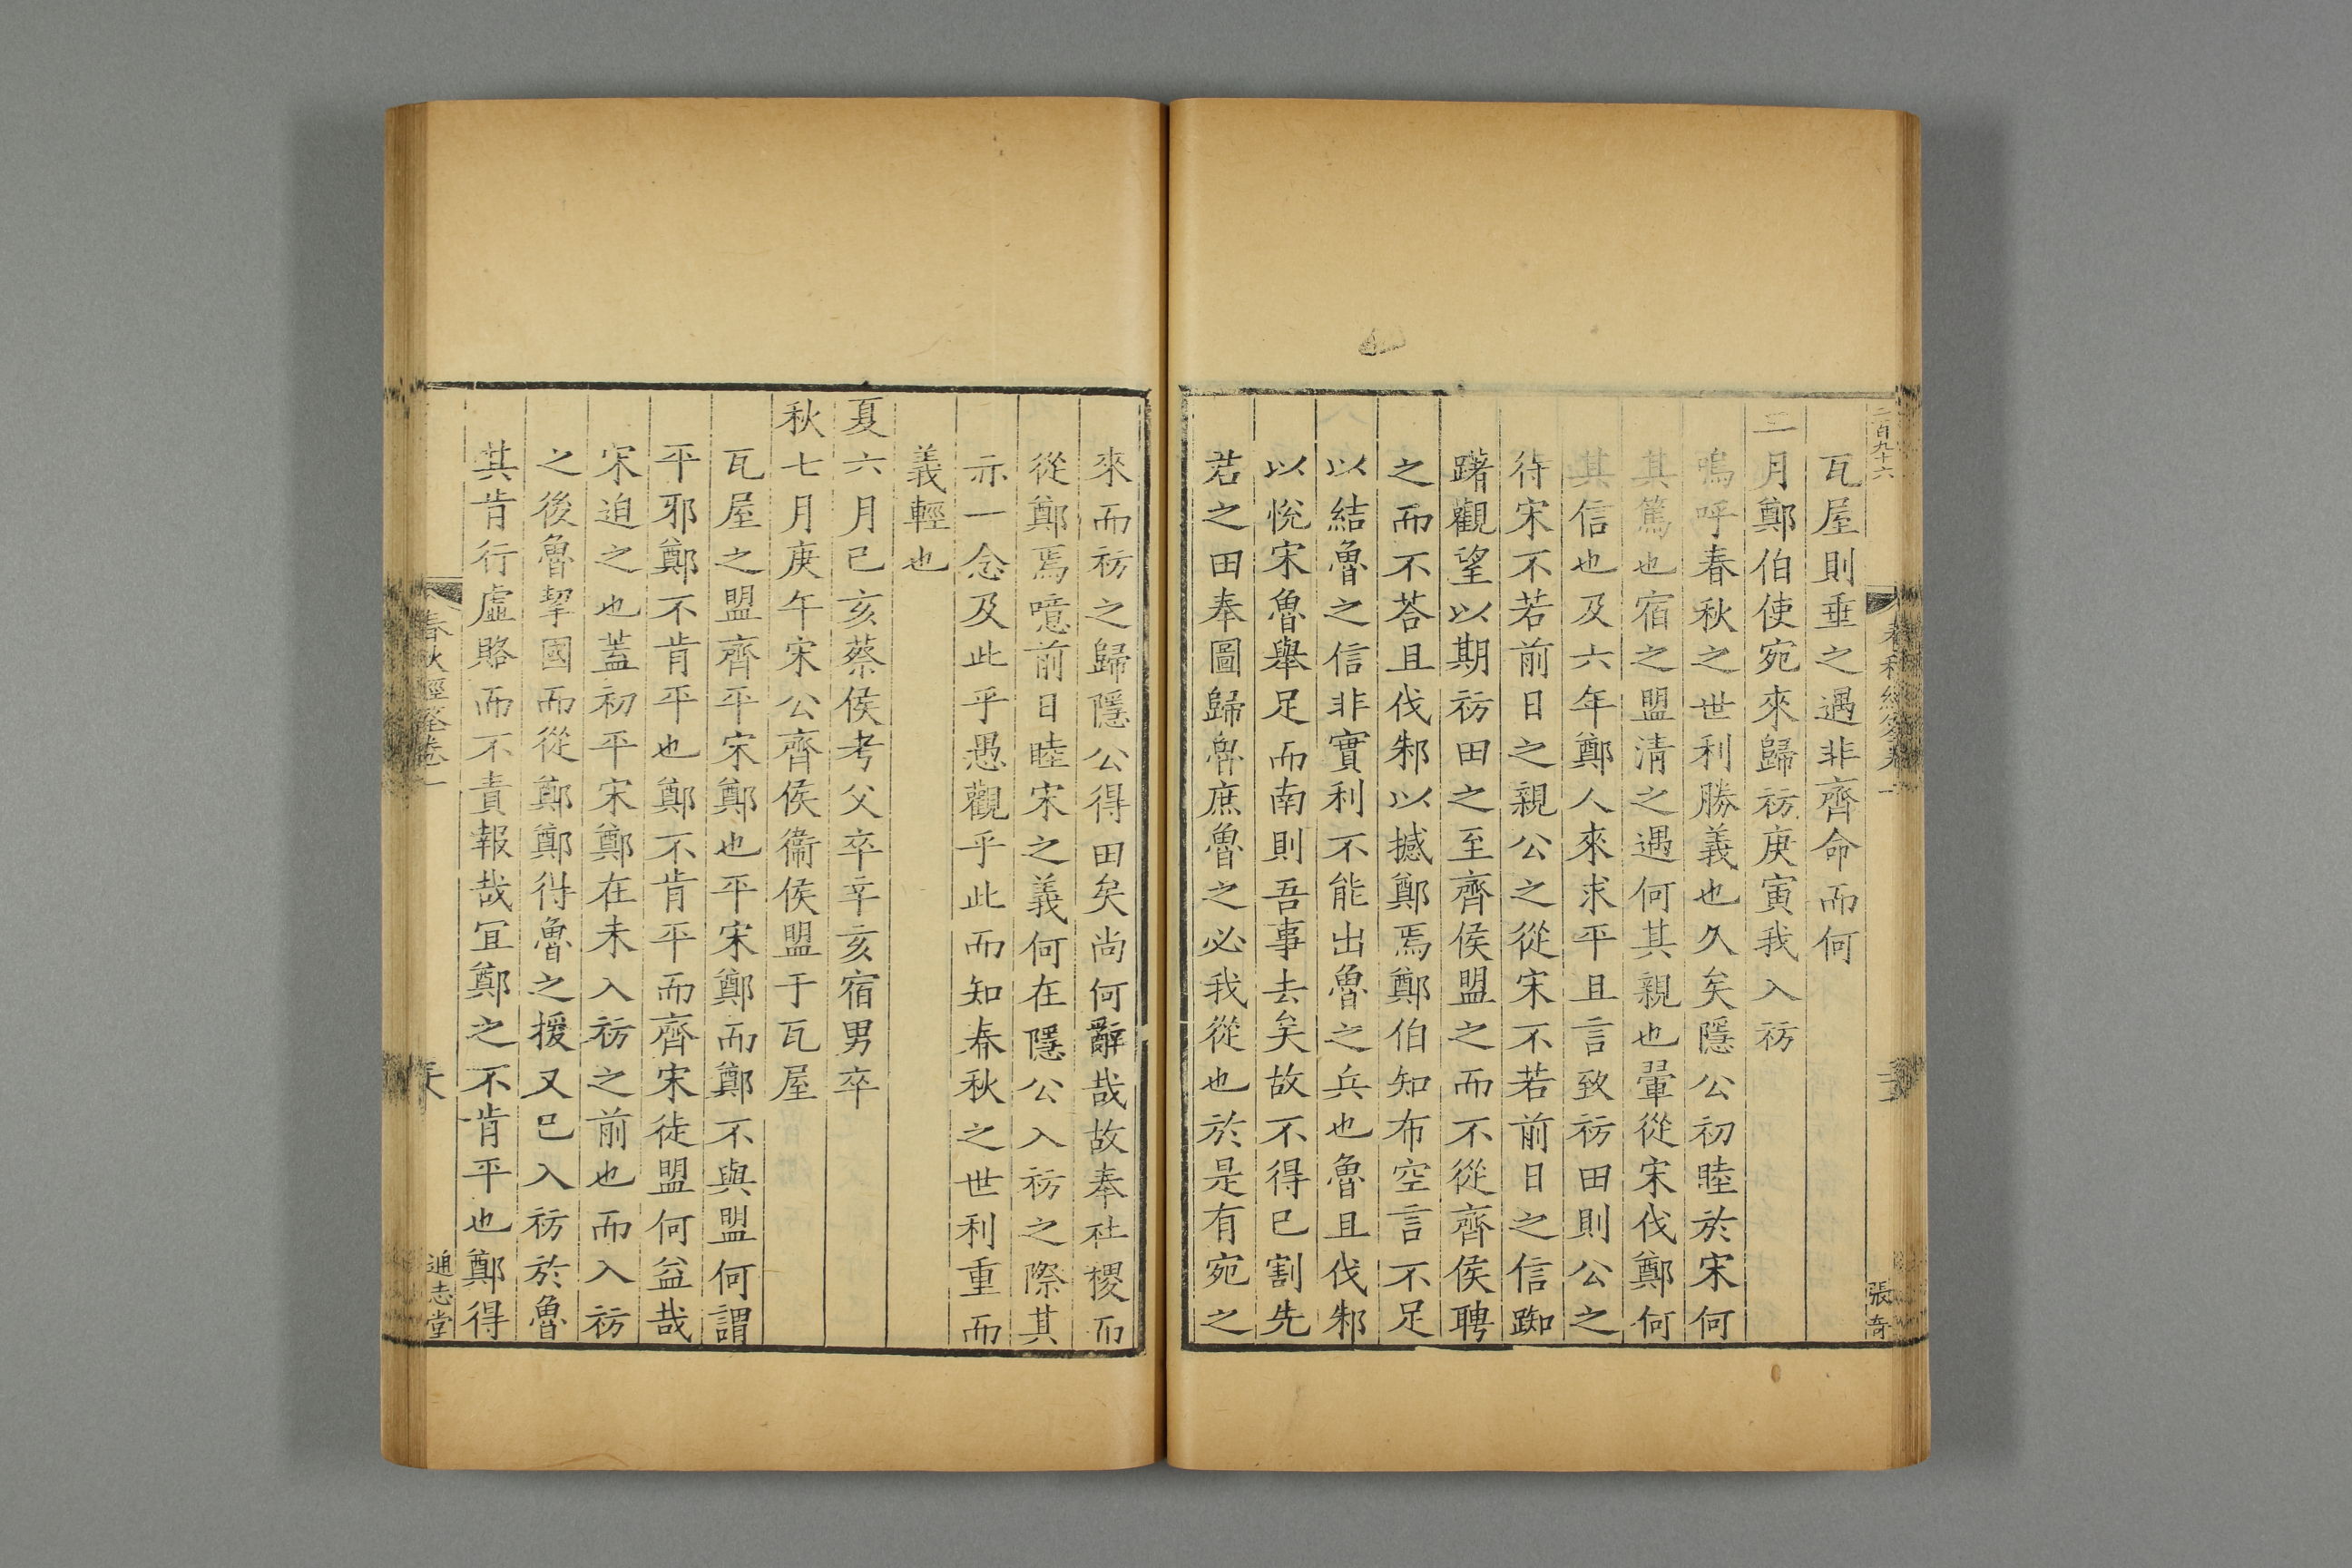 二百九十六
張奇
瓦屋則垂之遇非齊命而何
三月鄭伯使宛來歸祊庚寅我入祊
嗚呼春秋之世利勝義也久矣隱公初睦於宋何
其篤也宿之盟清之遇何其親也翬從宋伐鄭何
其信也及六年鄭人來求平且言致祊田則公之
待宋不若前日之親公之從宋不若前日之信踟
躇觀望以期祊田之至齊侯盟之而不從齊侯聘
之而不荅且伐邾以撼鄭焉鄭伯知布空言不足
以結魯之信非實利不能出魯之兵也魯且伐邾
以悅宋魯舉足而南則吾事去矣故不得已割先
若之田奉圖歸魯庶魯之必我從也於是有宛之
來而祊之歸隱公得田矣尚何辭哉故奉社稷而
從鄭焉噫前日睦宋之義何在隱公入祊之際其
亦一念及此乎愚觀乎此而知春秋之世利重而
義輕也
夏六月己亥蔡侯考父卒辛亥宿男卒
秋七月庚午宋公齊侯衞侯盟于瓦屋
瓦屋之盟齊平宋鄭也平宋鄭而鄭不與盟何謂
平邪鄭不肯平也鄭不肯平而齊宋徒盟何益哉
宋迫之也蓋初平宋鄭在未入祊之前也而入祊
之後魯挈國而從鄭鄭得魯之援又已入祊於魯
其肯行虛賂而不責報哉宜鄭之不肯平也鄭得
春秋經筌卷一
通志堂